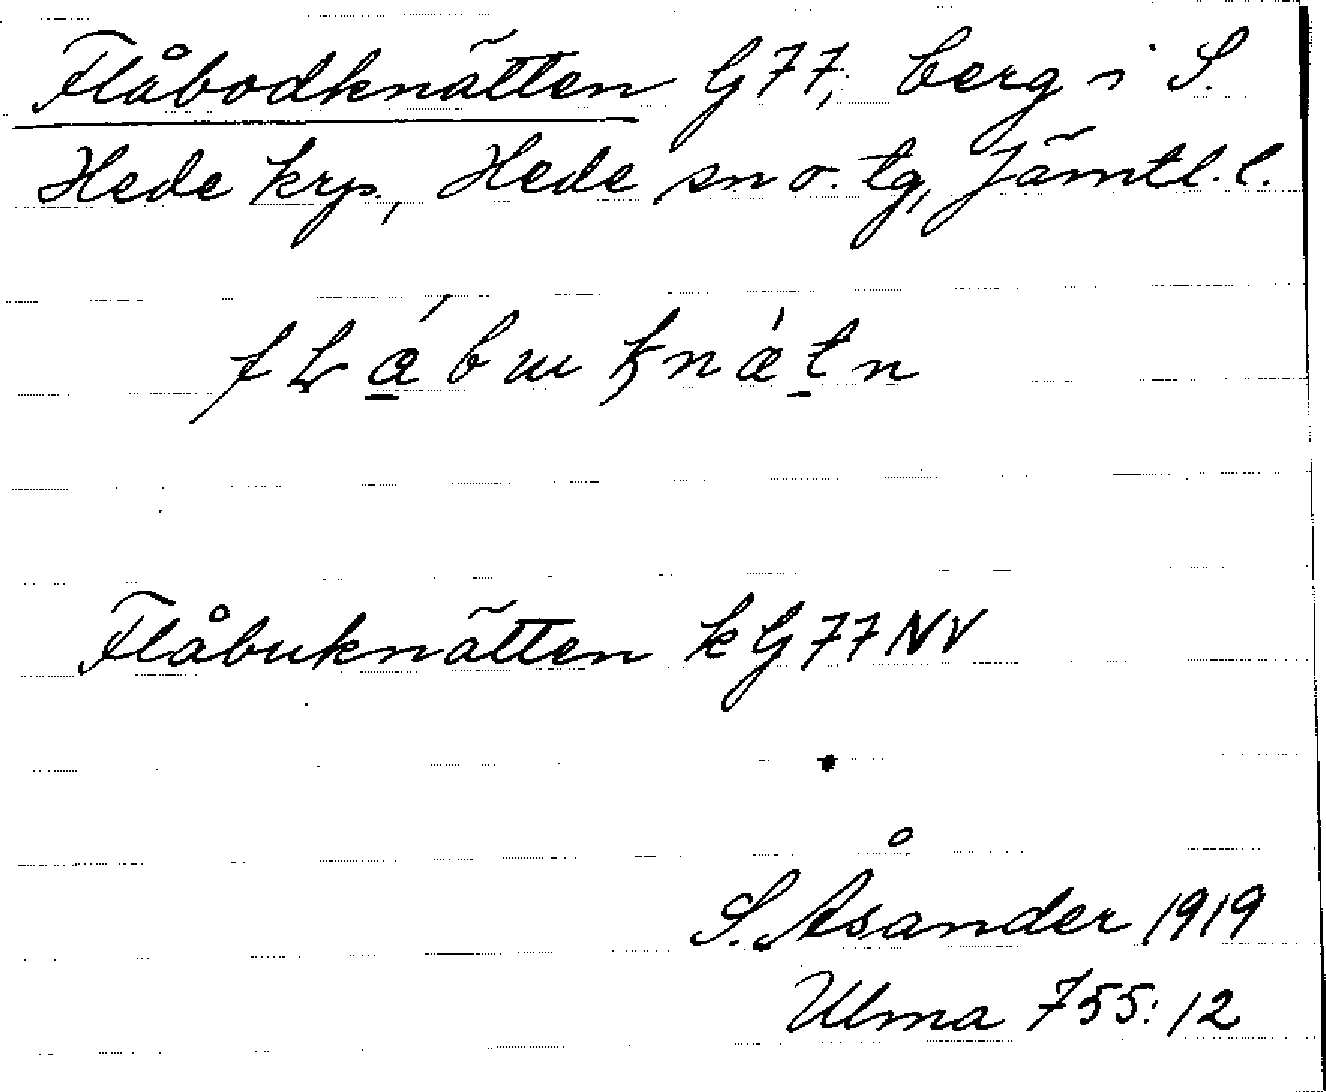 Flåbodknätten G77, berg i S.
Hede krp., Hede sn o. tg, Jämtl. l.
Flåbuknätten k G77NV
S. Åsander 1919
Ulma 755:12